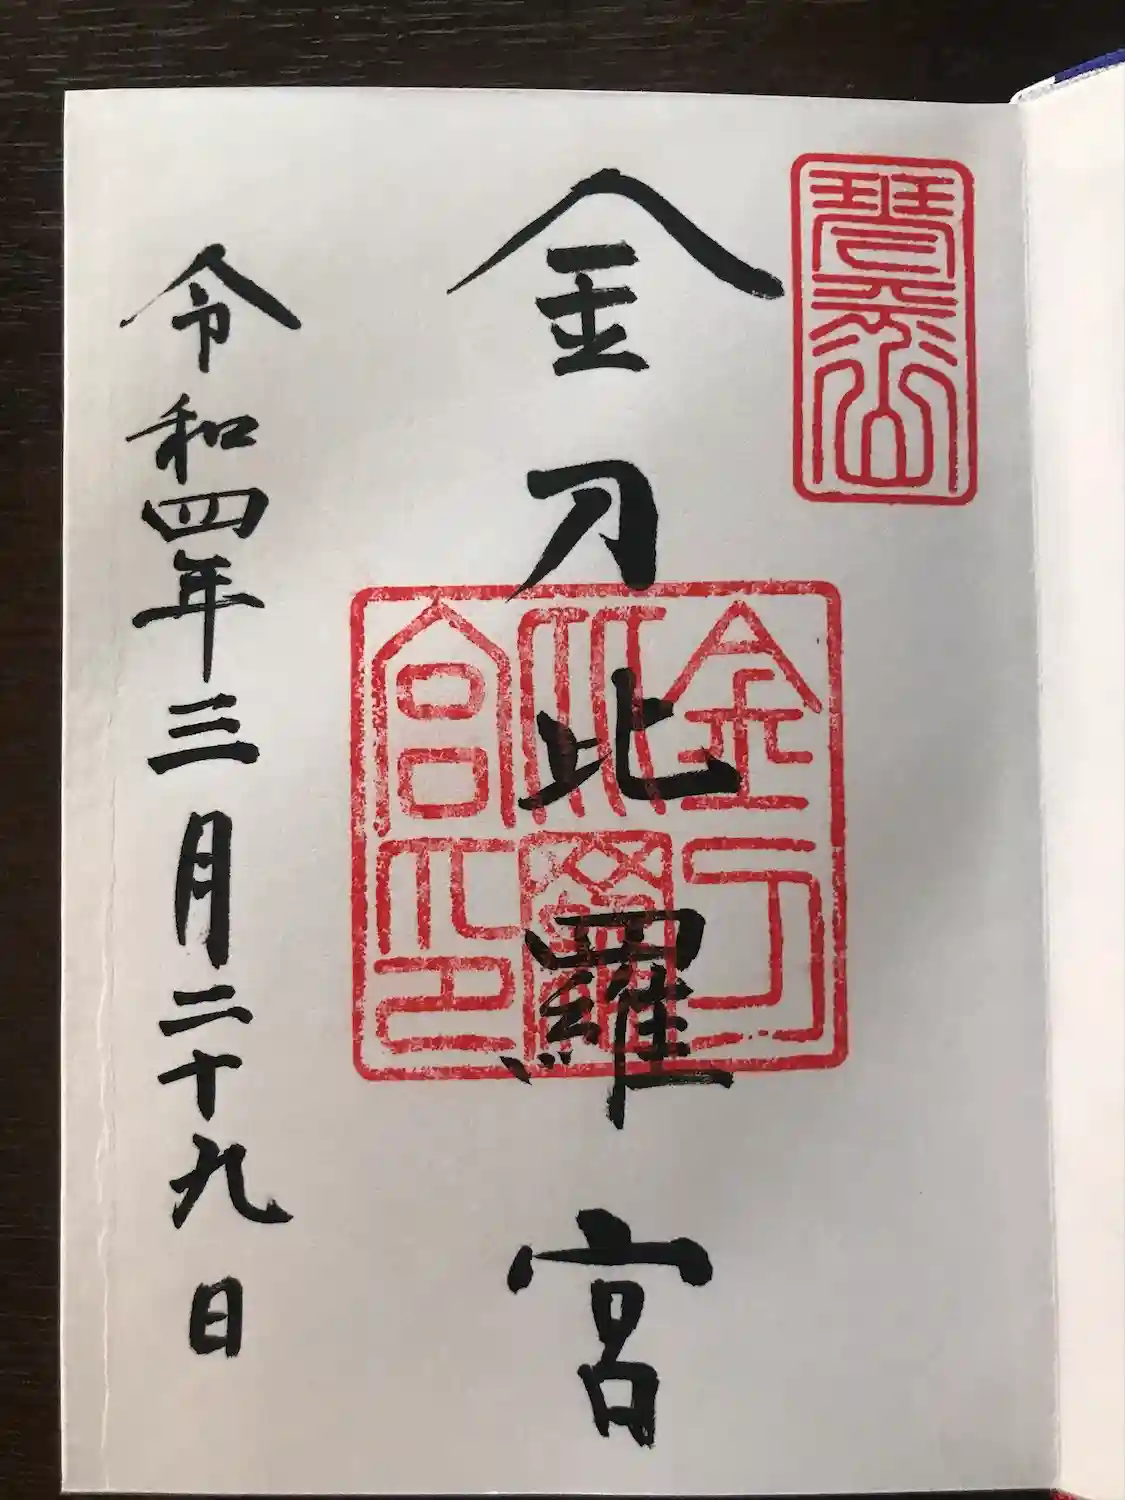 琴平山
金刀比羅宮
金刀比羅宮印
令和四年三月二十九日